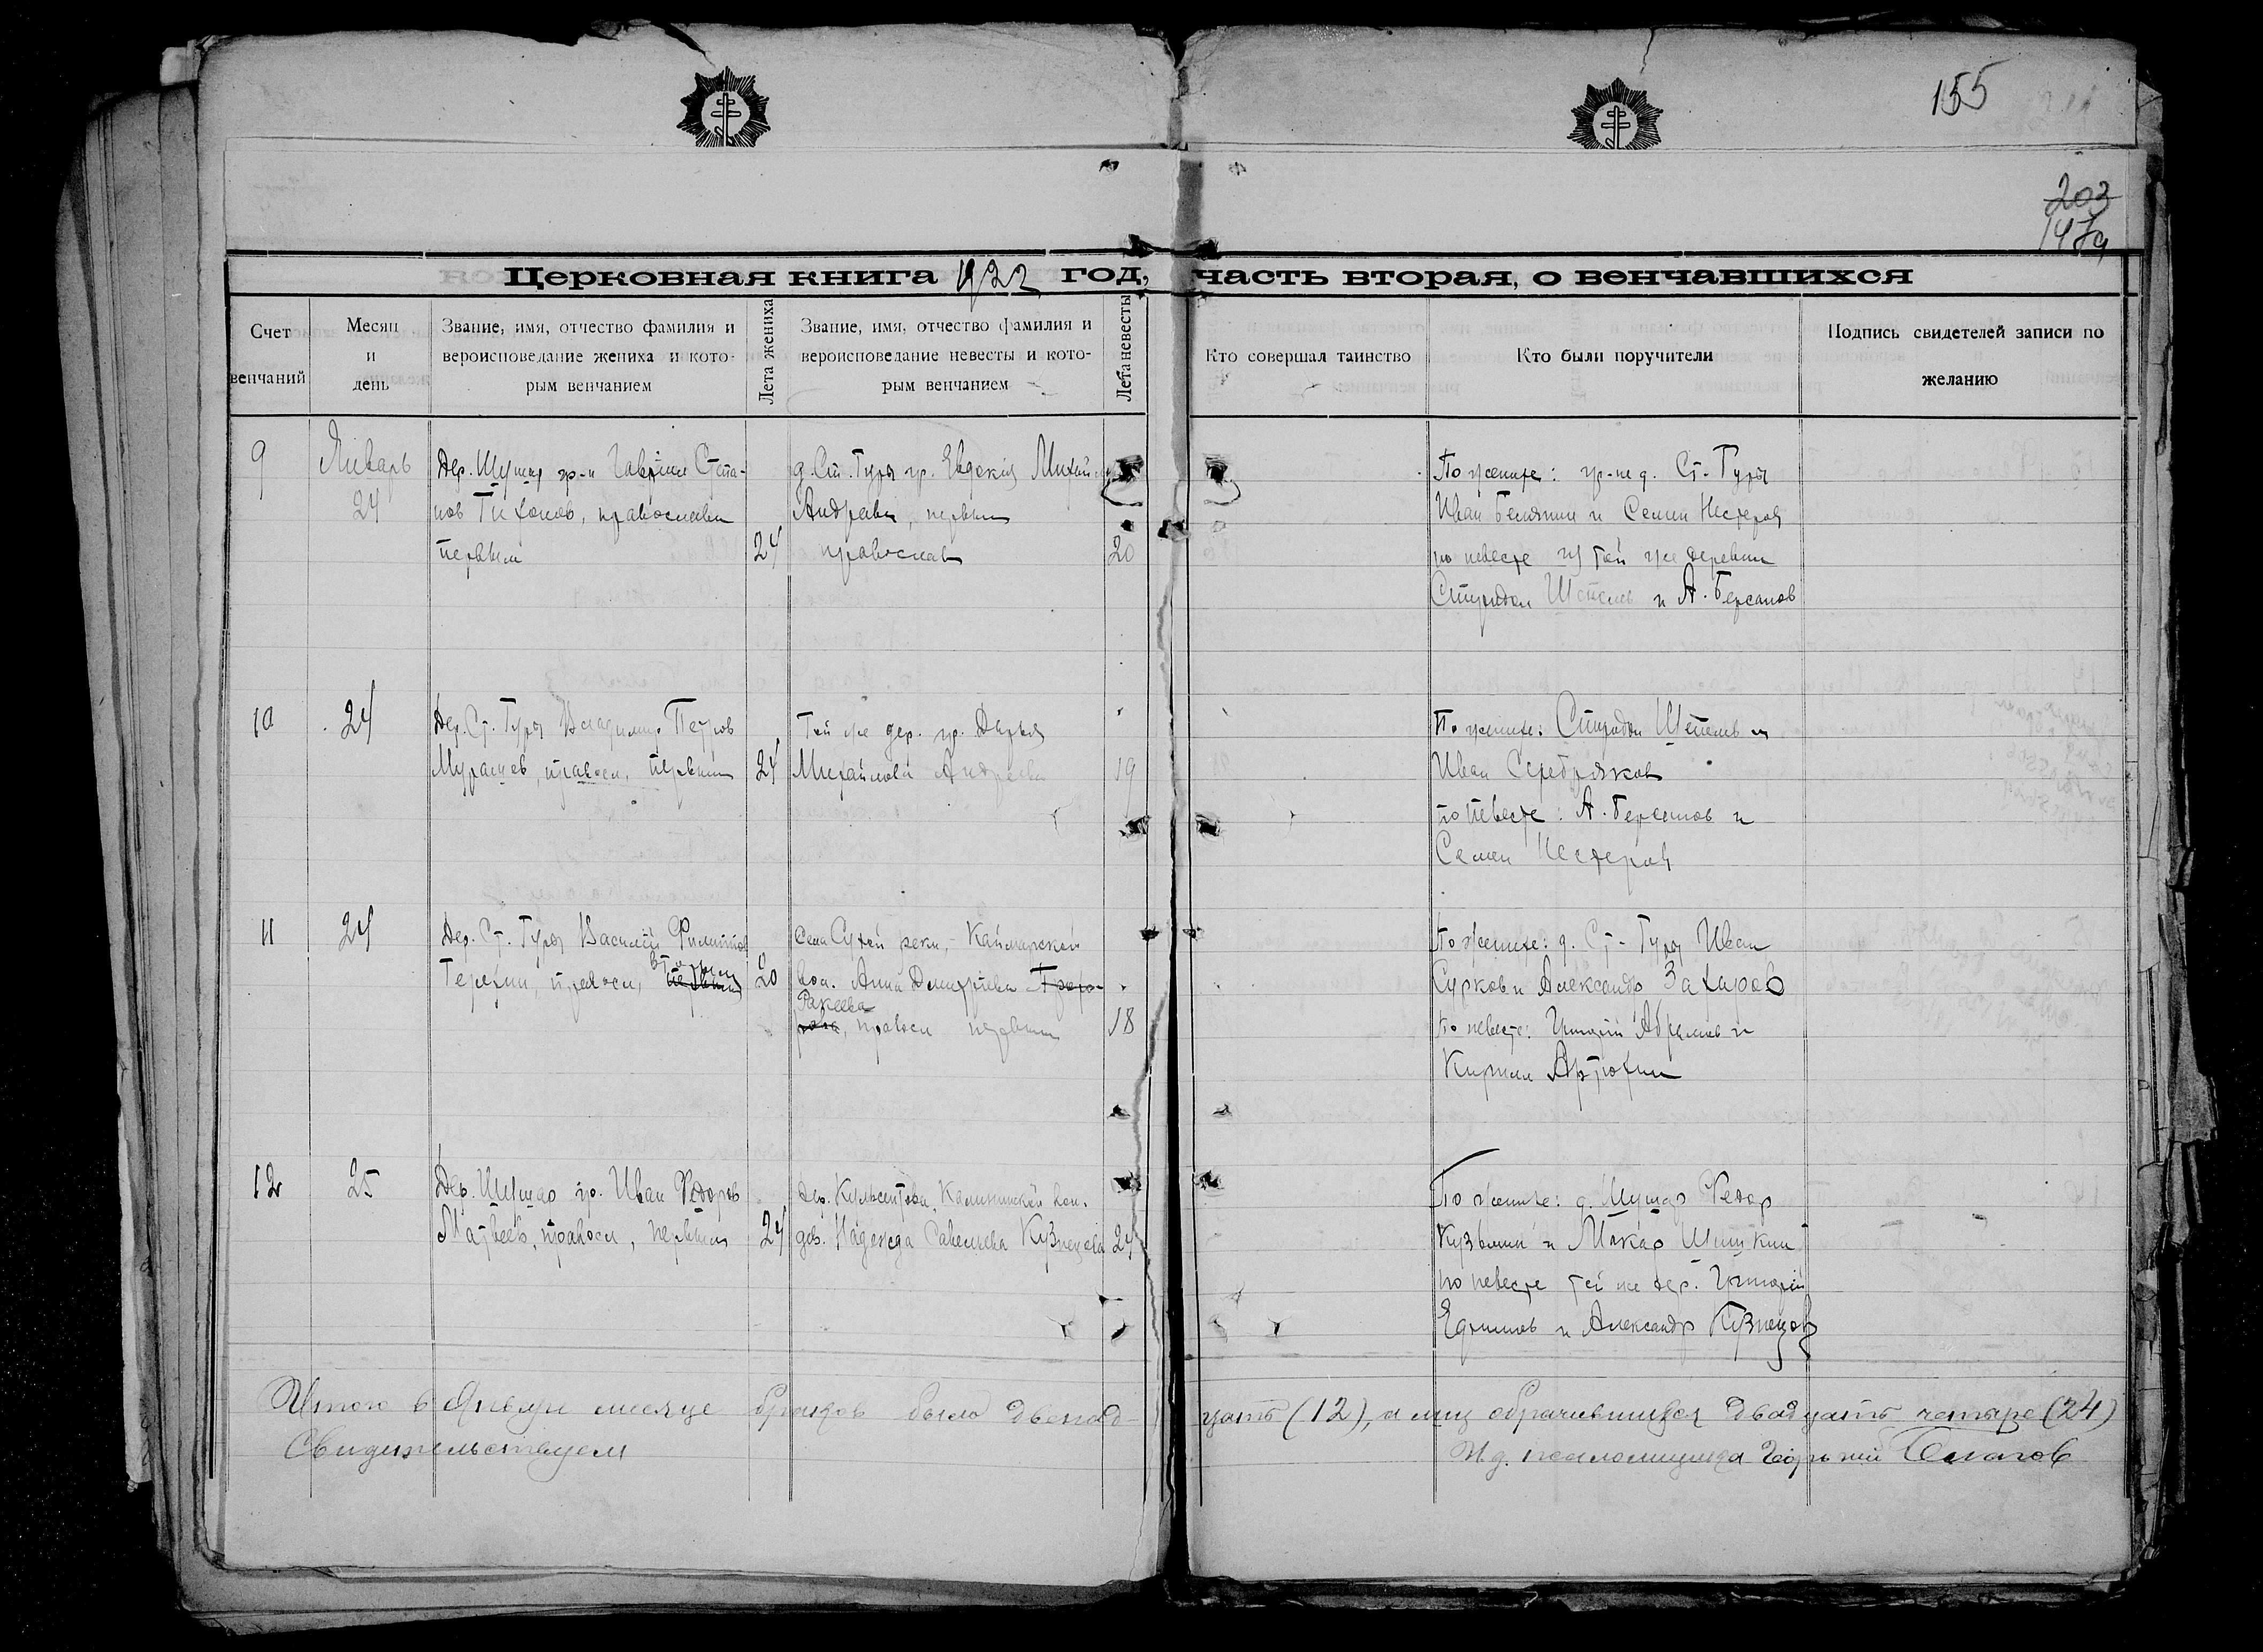 155
203
147
Церковная книга 1922 год, часть вторая, о венчавшихся
Счет венчаний
Месяц и день
Звание, имя, отчество фамилия и вероисповедание жениха и которым венчанием
Лета жениха
Звание, имя, отчество фамилия и вероисповедание невесты и которым венчанием
Лета невесты
Кто совершал таинство
Кто были поручители
Подпись свидетелей записи по желанию
9
Январь
24
Дер. Шушар гр-н Гавриил Степа-
нов Тихонов, православн
первым
24
д. Ст. Гуры гр. Евдокия Михайл
Андреева, первым
православ
20
По женихе: гр-не д. Ст-Гуры
Иван Белянин и Семен Нестеров
по невесте из той же деревни
Спиридон Шепелев и А. Берсенов
10
24
Дер. Ст. Гуры Владимир Петров
Муравцев, правосл, первым
24
Той же дер. гр. Дарья
Михайлова Андреева
19
По женихе: Спиридон Шепелев и
Иван Серебряков
по невесте: А. Берсенов и
Семен Нестеров
11
24
Дер. Ст. Гуры Василий Филиппов
Терехин, правосл, вторым первым
20
Села Сухой реки, Каймарской
вол. Анна Дмитриева
Ракеева, правосл первым
18
По женихе: д. Ст-Гуры Иван
Сурков и Александр Захаров
по невесте: Григорий Абрамов и
Кирилл Артюхин
12
25
Дер. Шушар гр. Иван Федоров
Матвеев, правосл, первым
24
дер. Кульсеитова, Калининской вол.
дев. Надежда Савельева Кузнецова
24
По женихе: д. Шушар Федор
Кузьмин и Макар Шишкин
по невесте той же дер. Григорий
Ефимов и Александр Кузнецов
Итого в Январе месяце браков было двенад-
цать (12), а лиц обрачившихся двадцать четыре (24)
Свидетельствуем
И. д. псаломщика Георгий